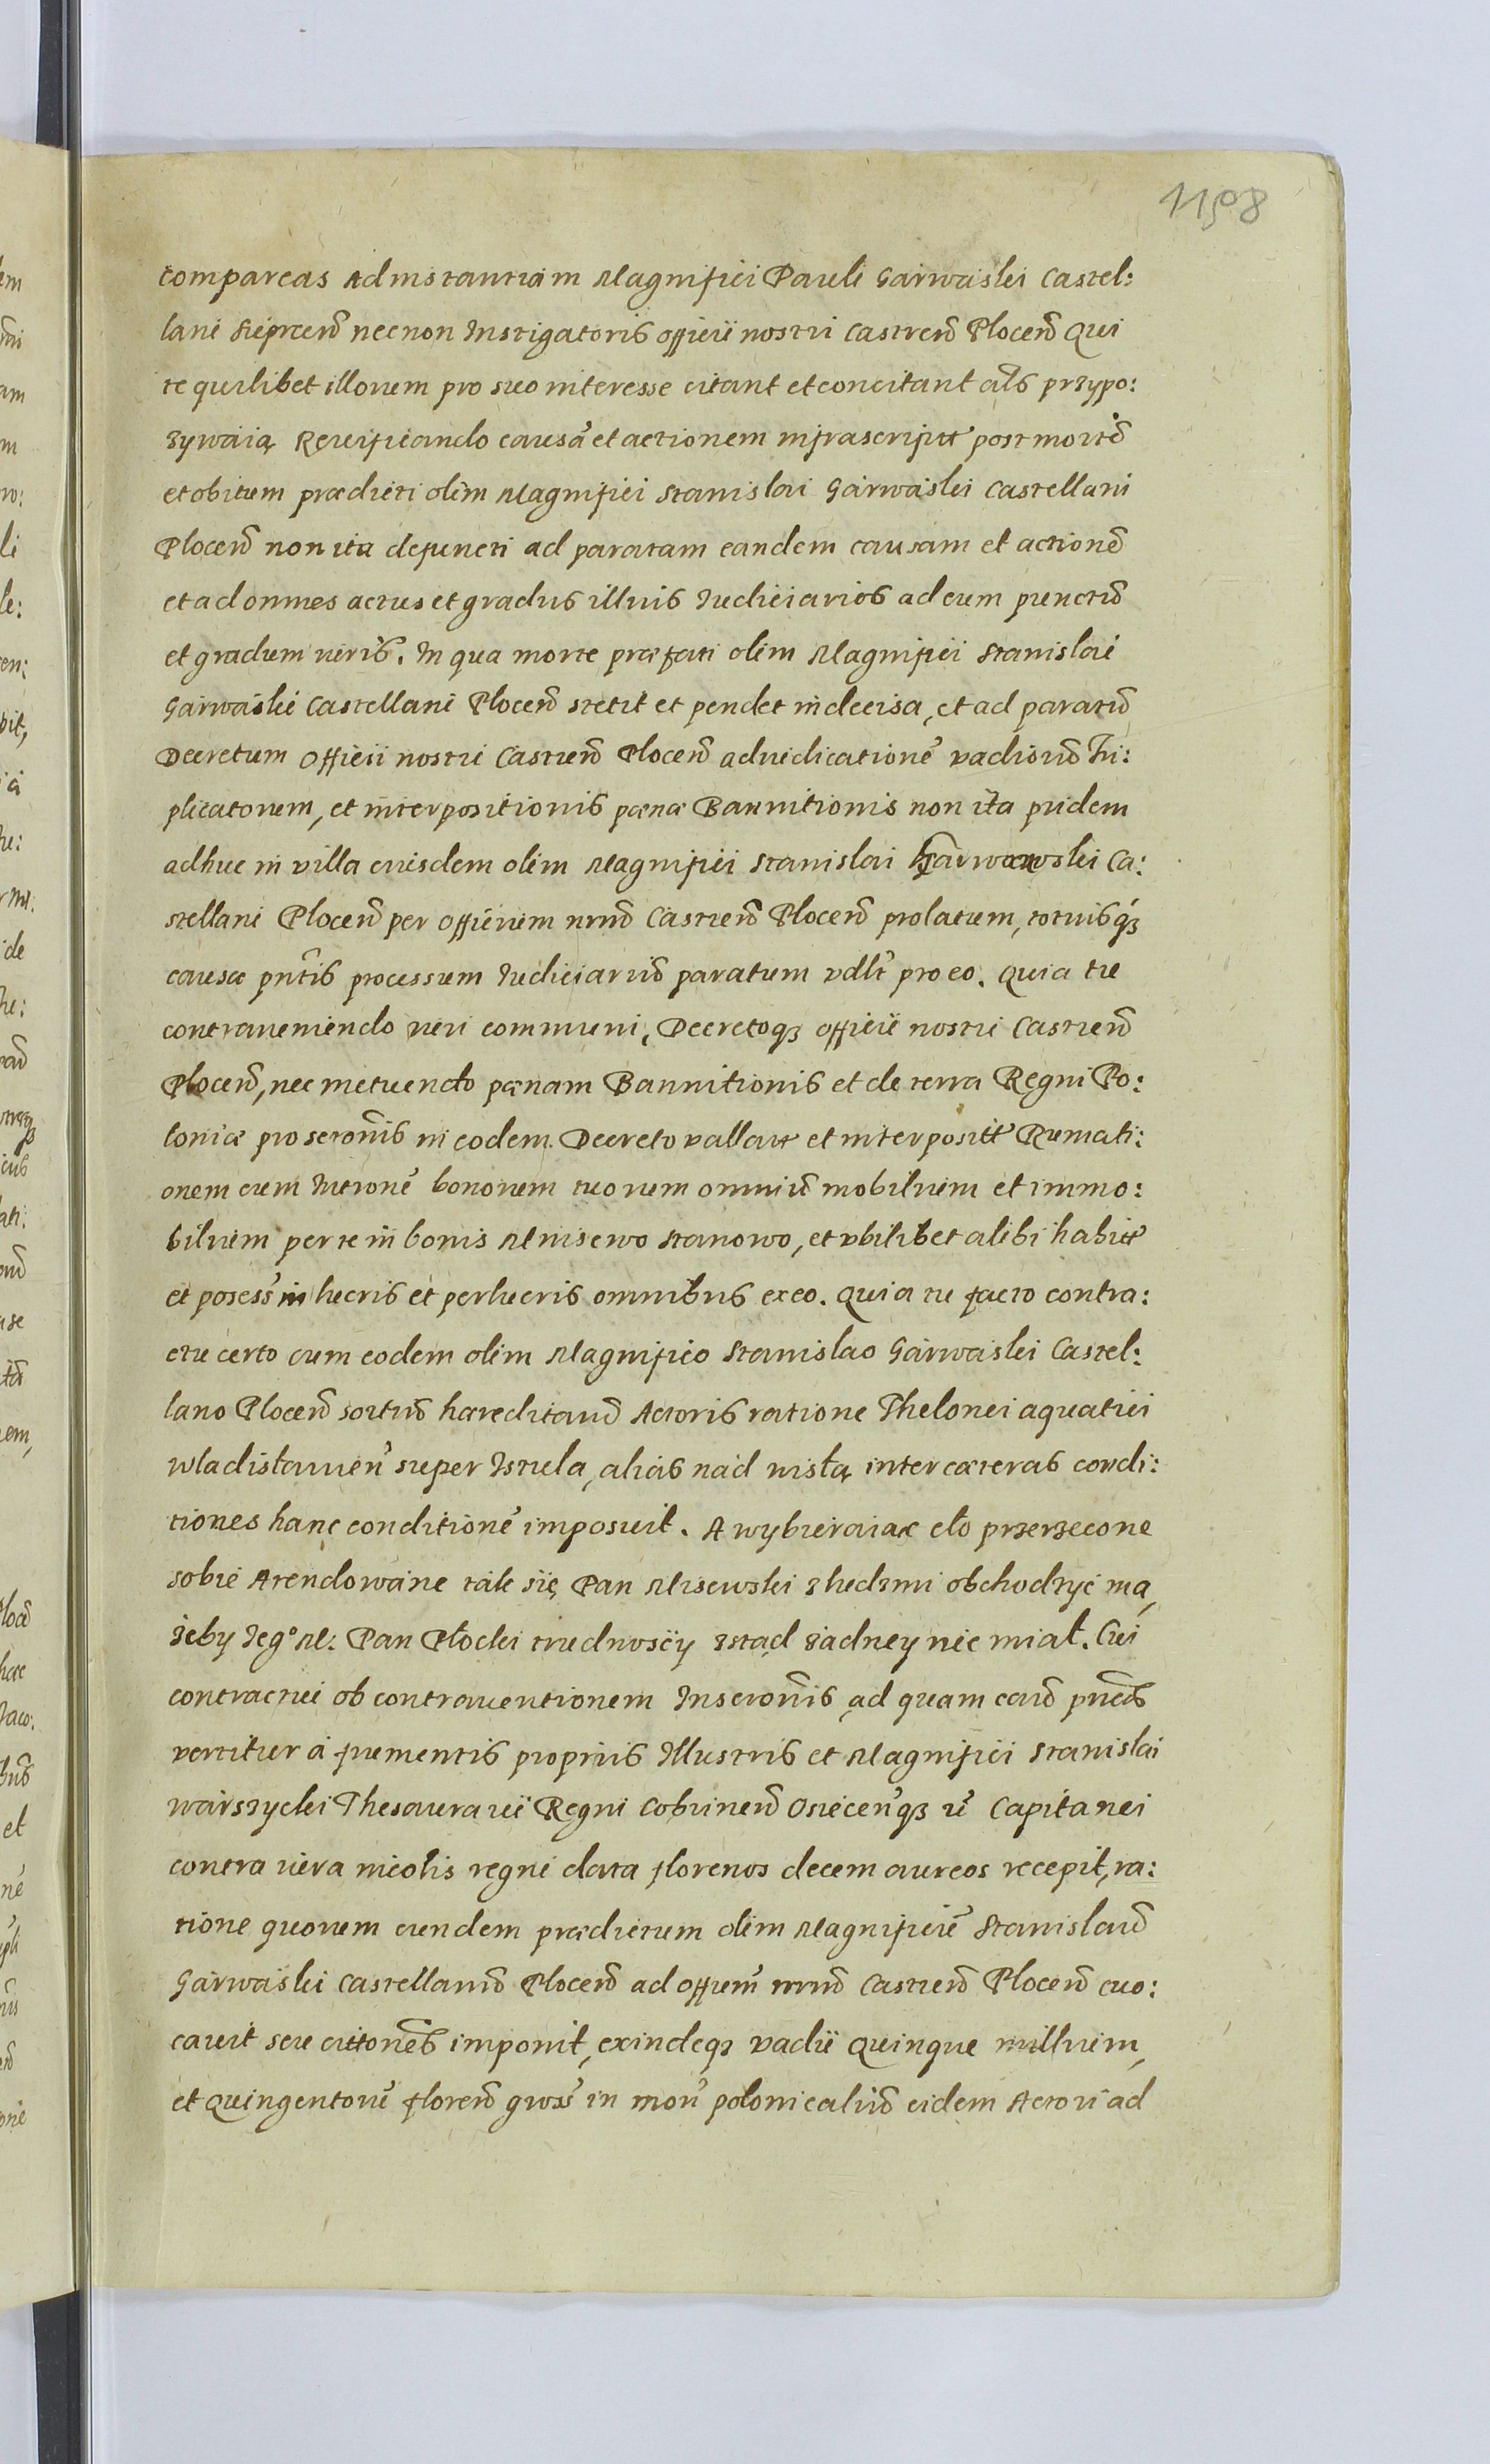 1198
compareas Ad instantiam Magnifici Pauli Garwaski Castel:
lani Sieprcen̄ necnon Instigatoris officii nostri Castren̄ Plocen̄ Qui
te quilibet illorum pro suo interesse citant et concitant als przypo:
zywaią Reuificando causā et actionem infrascriptt post mortē
et obitum prædicti olim Magnifici Stanislai Garwaski Castellani
Plocen̄ non ita defuncti ad paratam eandem causam et actionē
et ad omnes actus et gradus illius Iudiciarios ad eum punctū
et gradum iuris. In qua morte præfati olim Magnifici Stanislai
Garwaski Castellani Plocen̄ stetit et pendet indecisa, et ad paratū
Decretum Officii nostri Castren̄ Plocen̄ adiudicationē vadiorū Tri:
plicatorum, et interpositionis pœnæ Bannitionis non ita pridem
adhuc in villa eiusdem olim Magnifici Stanislai Garwawski Ca:
stellani Plocen̄ per Officium nrum̄ Castren̄ Plocen̄ prolatum, totiusq3
causæ pn̄tis processum Iudiciariū paratum vdlt̄ pro eo. Quia tu
contraueniendo iuri communi, Decretoq3 officii nostri Castren̄
Plocen̄, nec metuendo pœnam Bannitionis et de terra Regni Po:
loniæ proscron̄is in eodem Decreto vallatt et interpositt Rumati:
onem cum Inctionē bonorum tuorum omniū mobilium et immo:
bilium per te in bonis Mnisewo Stanowo, et vbilibet alibi habitt
et posess̄ in lucris et perlucris omnibus exeo. Quia tu facto contra:
ctu certo cum eodem olim Magnifico Stanislao Garwaski Castel:
lano Plocen̄ sortiū hæreditariū Actoris ratione Thelonei aquatici
Wladislauien̄ super Istula, alias nad wisłą inter cæteras condi:
tiones hanc conditionē imposuit. A wybieraiąc cło przerzecone
sobie Arendowane tak się Pan Misewski z ludzmi obchodzyć ma,
żeby Jegº M: Pan Płocki trudnosciy ztąd żadney nie miał. Cui
contractui ob contrauentionem Inscron̄is, ad quam cau̅ pn̄s
vertitur à frumentis propriis Illustris et Magnifici Stanislai
Warszycki Thesaurarii Regni Cobrinen̄ Osiecen̄q3 Capitanei
contra iura incolis regni data florenos decem aureos recepit, ra:
tione quorum eundem prædictum olim Magnificū Stanislaū
Garwaski Castellanū Plocen̄ ad Offium̄ nrum̄ Castren̄ Plocen̄ euo:
cauit seu cittones̄ imponit, exindeq3 vadii Quinque millium,
et Quingentorū floren̄ gross̄ in mon̄ polonicaliū eidem Actori ad